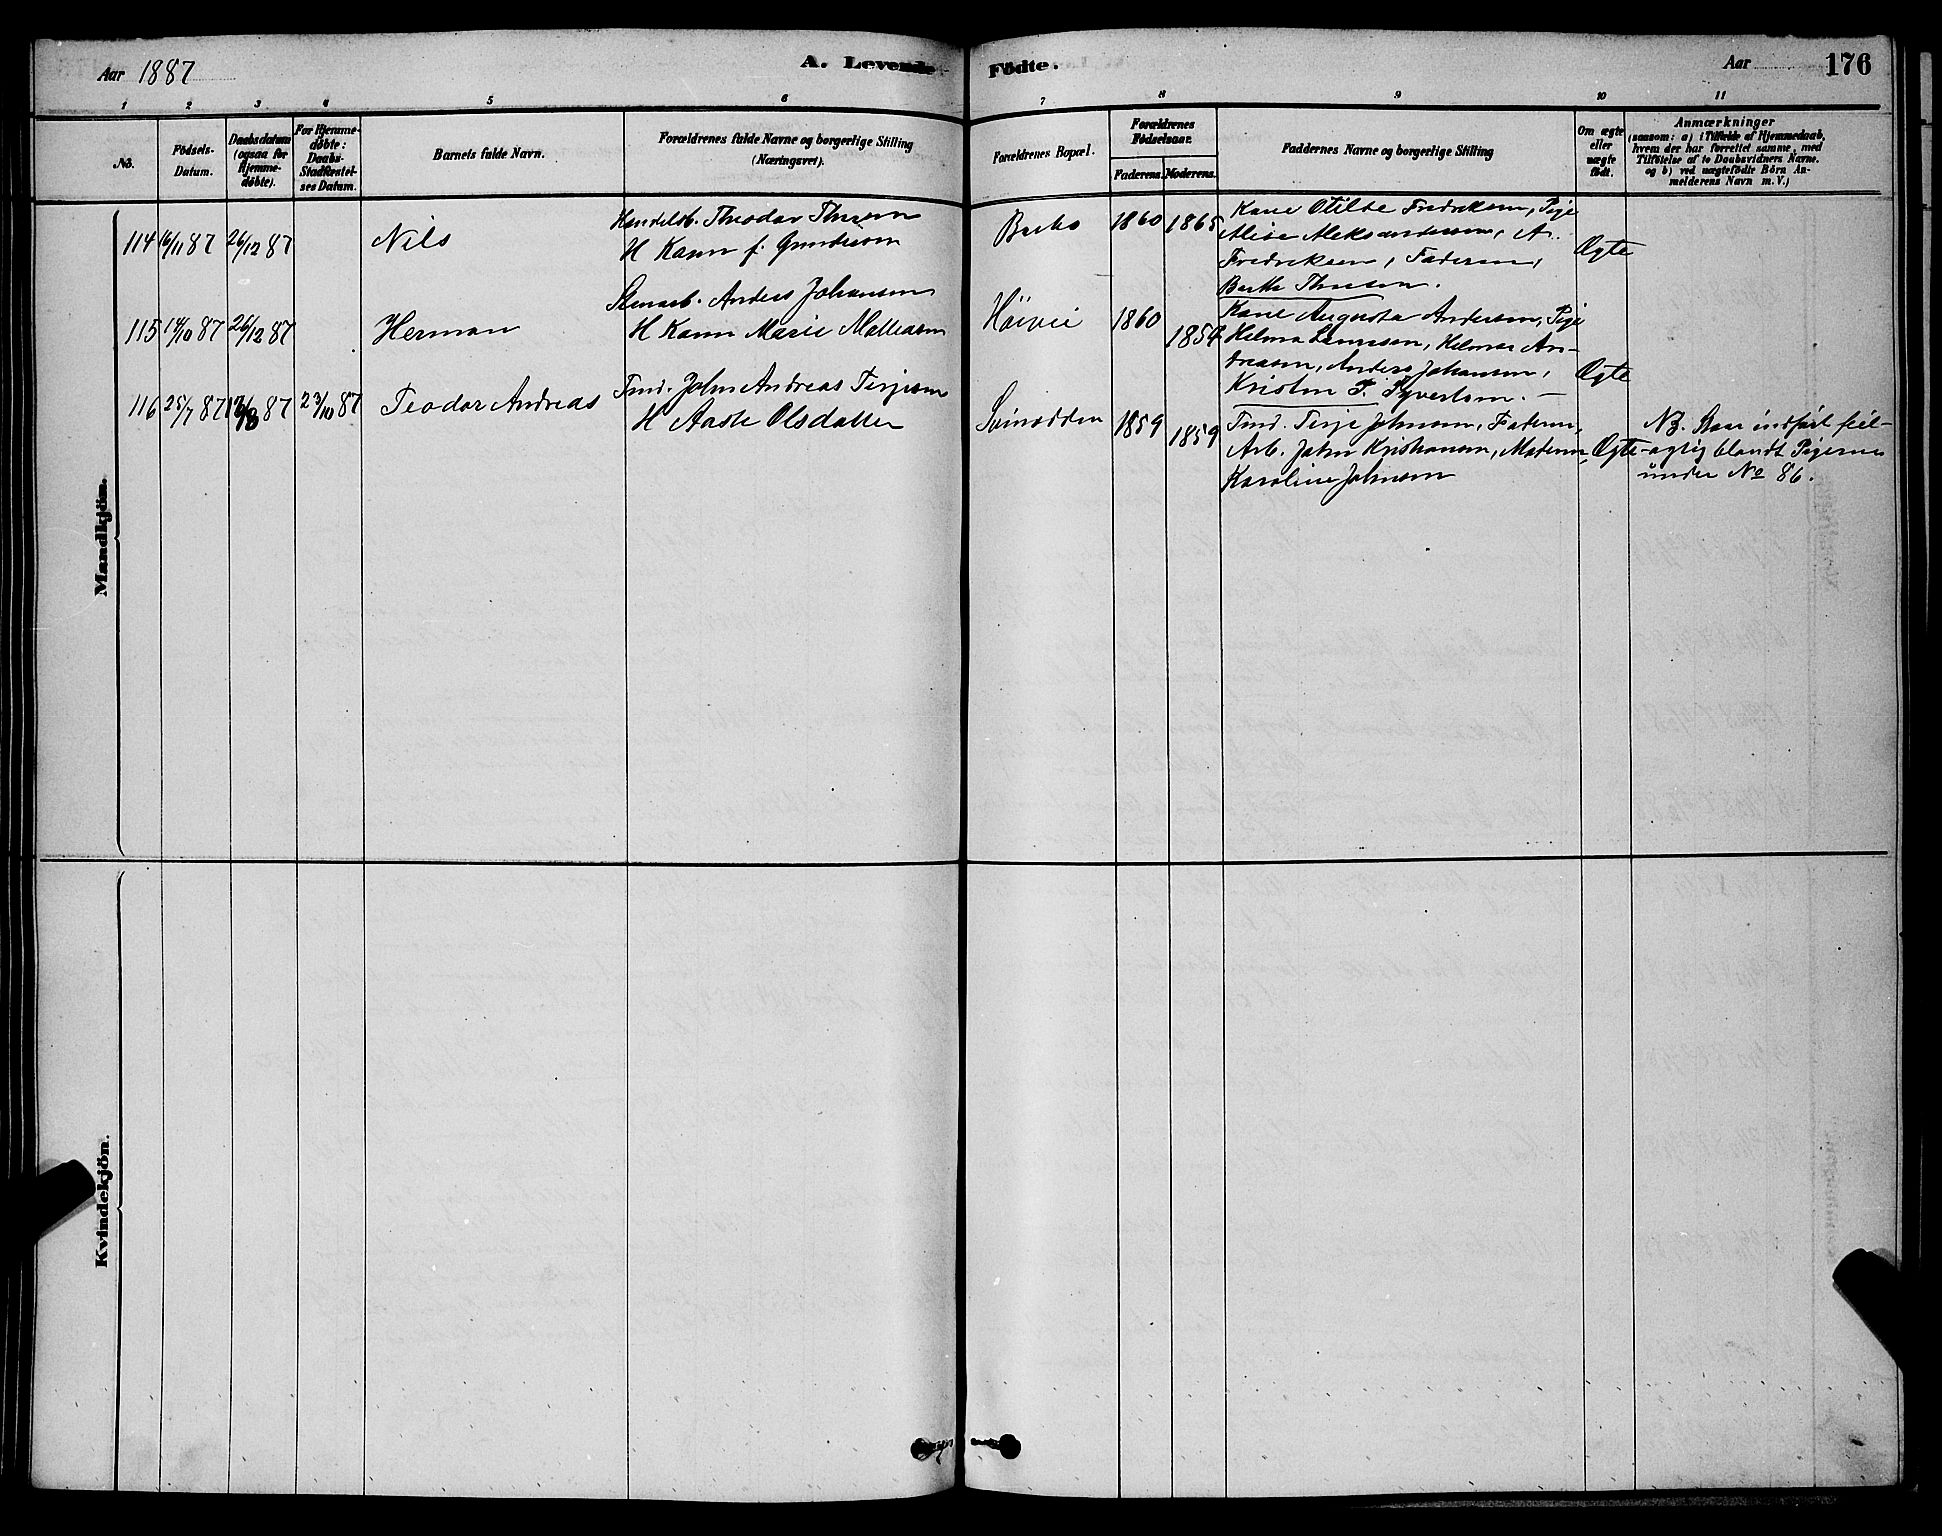 Aar 1887
A. Levende Födte.
Aar
176
1 2 3 4 5 6 7 8 9 10 11
No.
Födsels-Datum.
Daabsdatum (ogsaa for Hjemme-döbte).
For Hjemme-döbte: Daabs-Stadfæstel-ses Datum.
Barnets fulde Navn.
Forældrenes fulde Navne og borgerlige Stilling (Næringsvei).
Forældrenes Bopæl.
Forældrenes Födselsaar.
Faderens. Moderens.
Faddernes Navne og borgerlige Stilling
Om ægte eller uægte født.
Anmærkninger
(saasom: a) i Tilfælde af Hjemmedaab,
hvem der har forrettet samme, med
Tilföielse af to Daabsvidners Navne.
og b) ved uægtefödte Börn An-
melderens Navn m. V.)
Mandkjön.
114 16/11 87 26/12 87
Nils
Handelsb. Theodor Thusen
H Kann f. Gundersen
Barbo
1860 1865
Kone Otilde Fredriksen, Pige
Alise Aleksandersen, A.
Fredriksen, Faderen,
Berthe Thusen.
Ægte
115 14/10 87 26/12 87
Herman
Stenarb. Anders Johansen
H Karen Marie Matteasen
Höivei
1860 1854
Kone Augusta Andersen, Pige
Helma Lauresen, Helmer An-
dreasen, Anders Johansen,
Kristen T. Syvertsen. —
Ægte
116 25/7 87 /8 87 23/10 87
Teodor Andreas
Tmd. John Andreas Terjesen
H Aaste Olsdatter
Svinodden
1859 1859
Tmd. Terje Johnsen, Faderen,
Arb. John Kristiansen, Moderen,
Karoline Johnsen
Ægte
NB. Staar indfört feil-
agtig blandt Pigerne
under No 86.
Kvindekjön.